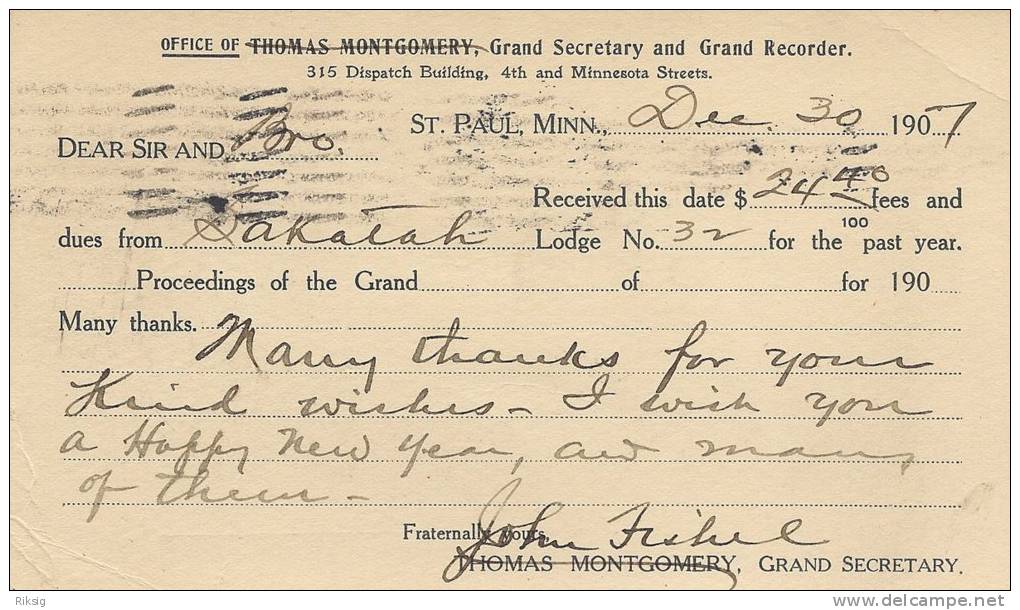 OFFICE OF THOMAS MONTGOMERY, Grand Secretary and Grand Recorder.
315 Dispatch Building, 4th and Minnesota Streets.
ST. PAUL, MINN., Dec. 30 1907
DEAR SIR AND Bro.
Received this date $ 24 40/100 fees and
dues from Sakatah Lodge No. 32 for the past year.
Proceedings of the Grand of for 190
Many thanks.
Many thanks for your
Kind wishes - I wish you
a Happy New Year, and many
of them -
Fraternally yours,
John Fishel
THOMAS MONTGOMERY, GRAND SECRETARY.
Riksig
delcampe.net